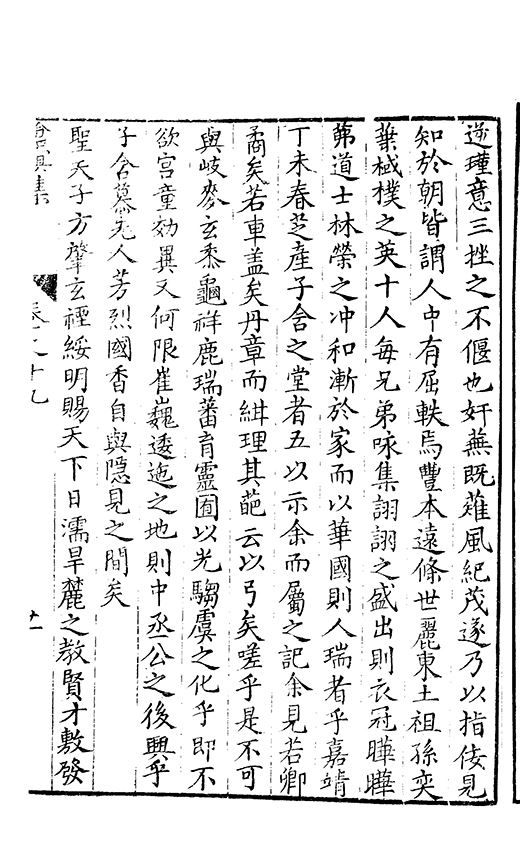 逆瑾意三挫之不偃也奸蕪既薙風紀茂遂乃以指佞見
知於朝皆謂人中有屈軼焉豐本遠條世麗東土祖孫奕
葉棫樸之英十人每兄弟咏集詡詡之盛出則衣冠曄曄
茀道士林榮之冲和漸於家而以華國則人瑞者乎嘉靖
丁未春芝產子舍之堂者五以示余而屬之記余見若卿
矞矣若車蓋矣丹章而緋理其葩云以弓矣嗟乎是不可
與岐麥玄黍龜祥鹿瑞蕃育靈囿以光騶虞之化乎即不
欲宫童効異又何限崔巍逶迤之地則中丞公之後興乎
子舍慕先人芳烈國香自與隱見之間矣
聖天子方肇玄禋綏明賜天下日濡旱麓之教賢才敷發
卷之十九
十一